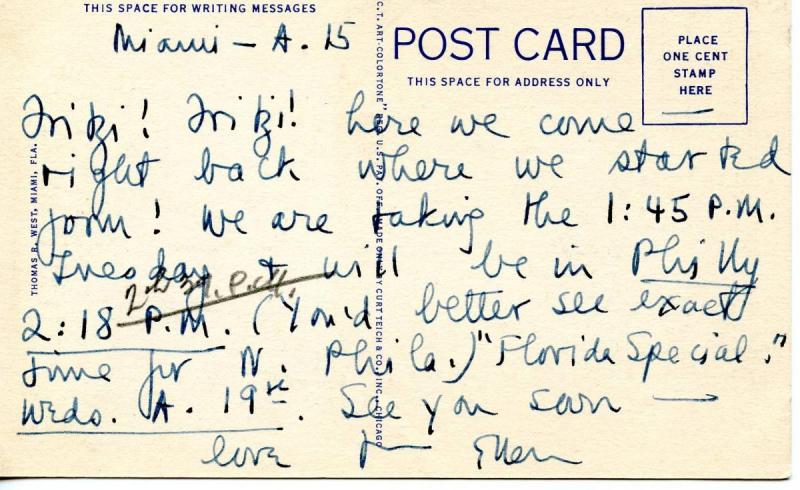 THIS SPACE FOR WRITING MESSAGES
Miami — A. 15
POST CARD
THIS SPACE FOR ADDRESS ONLY
PLACE
ONE CENT
STAMP
HERE
Fritzi! Fritzi! here we come —
right back where we started
from! We are taking the 1:45 P.M.
Tuesday & will be in Philly
2:18 P.M. (You'd better see exact
time for N. Phila.) "Florida Special."
Weds. A. 19th. See you soon —
love Ellen
THOMAS R. WEST, MIAMI, FLA.